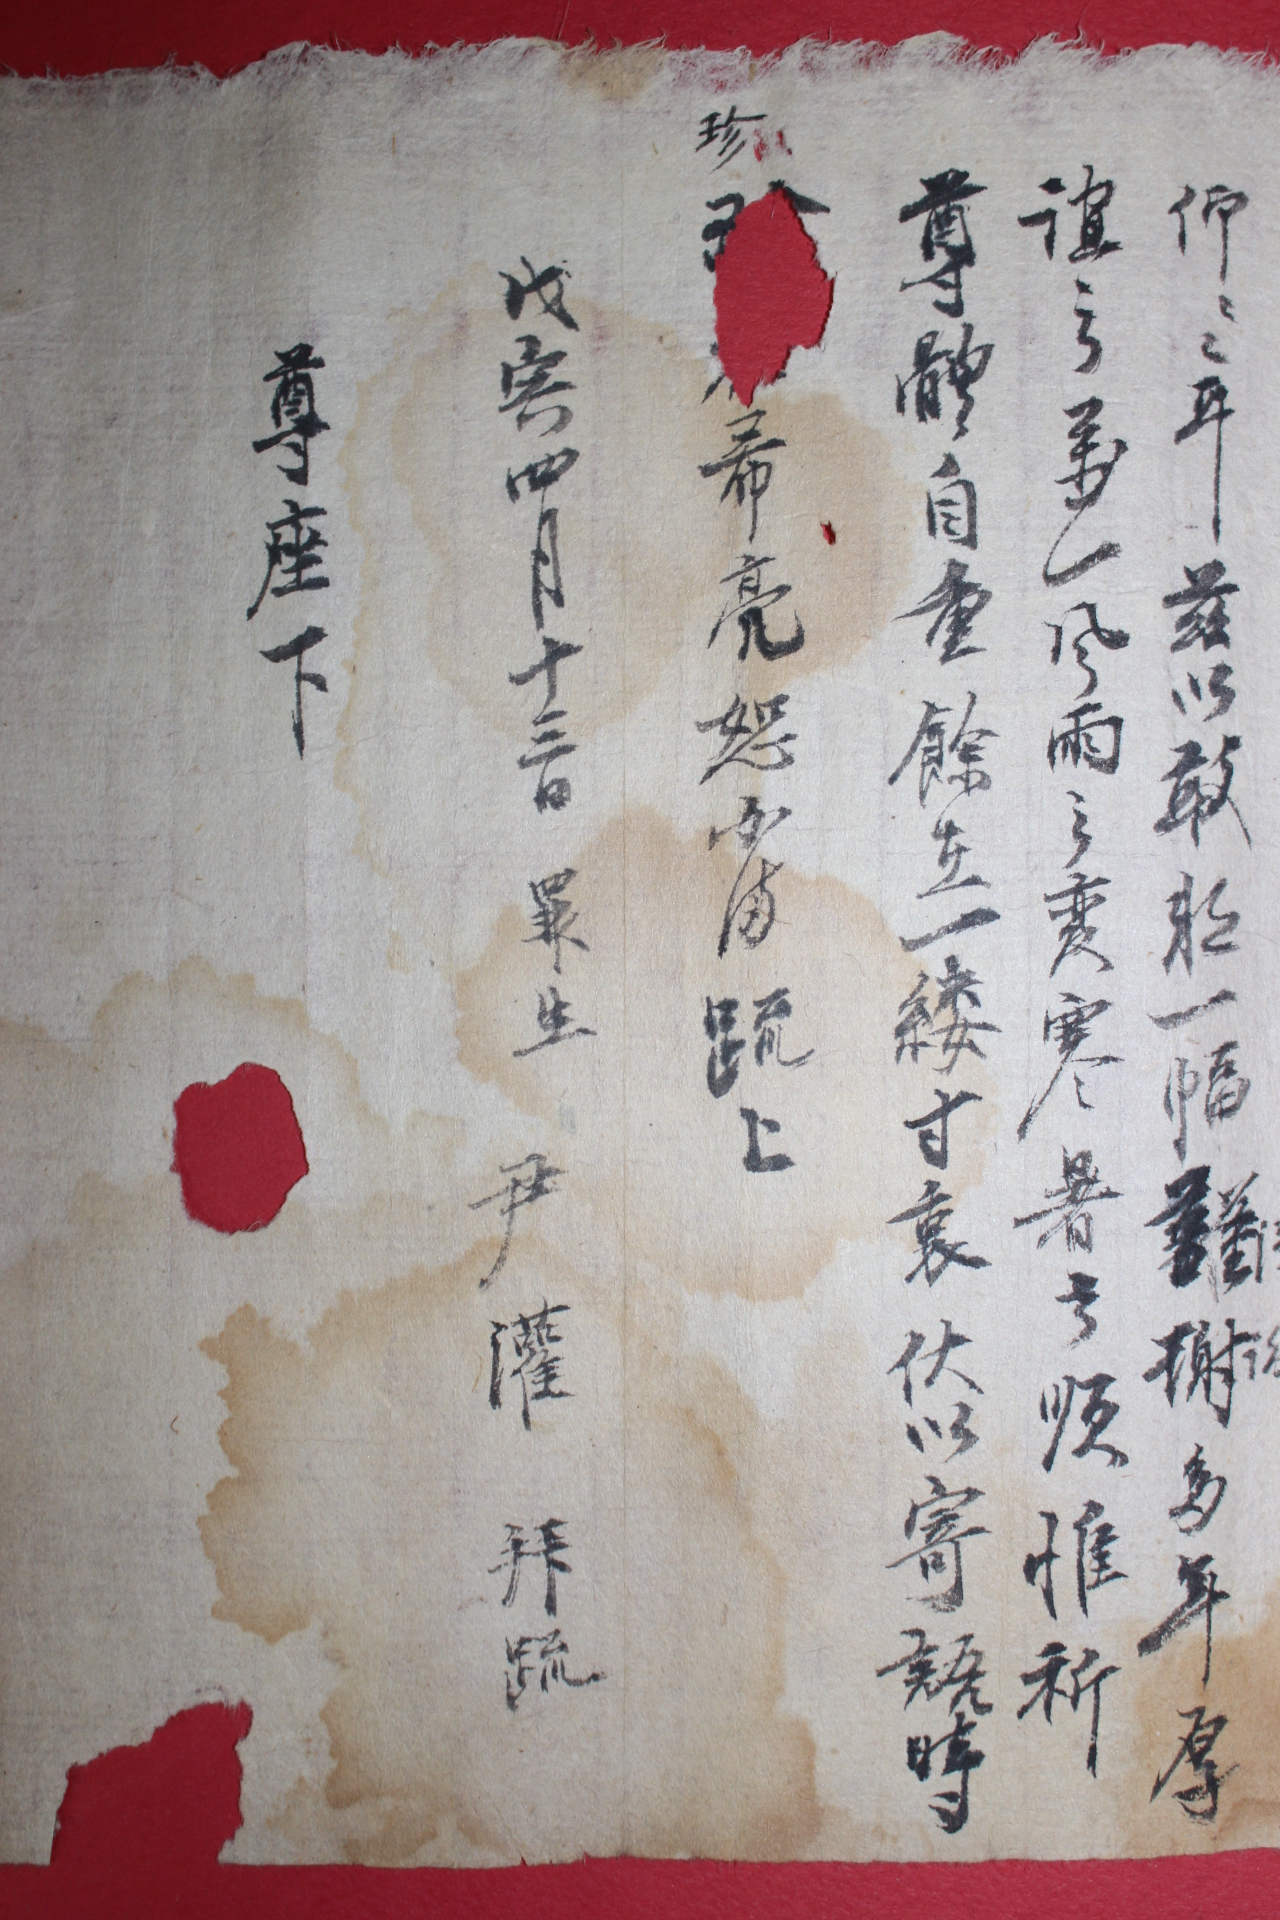 仰〻〻耳 茲以敢彤一幅 謹謝多年厚
誼之萬一 風雨之變 寒暑之順 惟祈
尊體自重 餘在一縷寸衷 伏以寄語 時
珍 希亮恕 不備疏上
戊寅四月十三日 罪生 尹灌 拜疏
尊座下